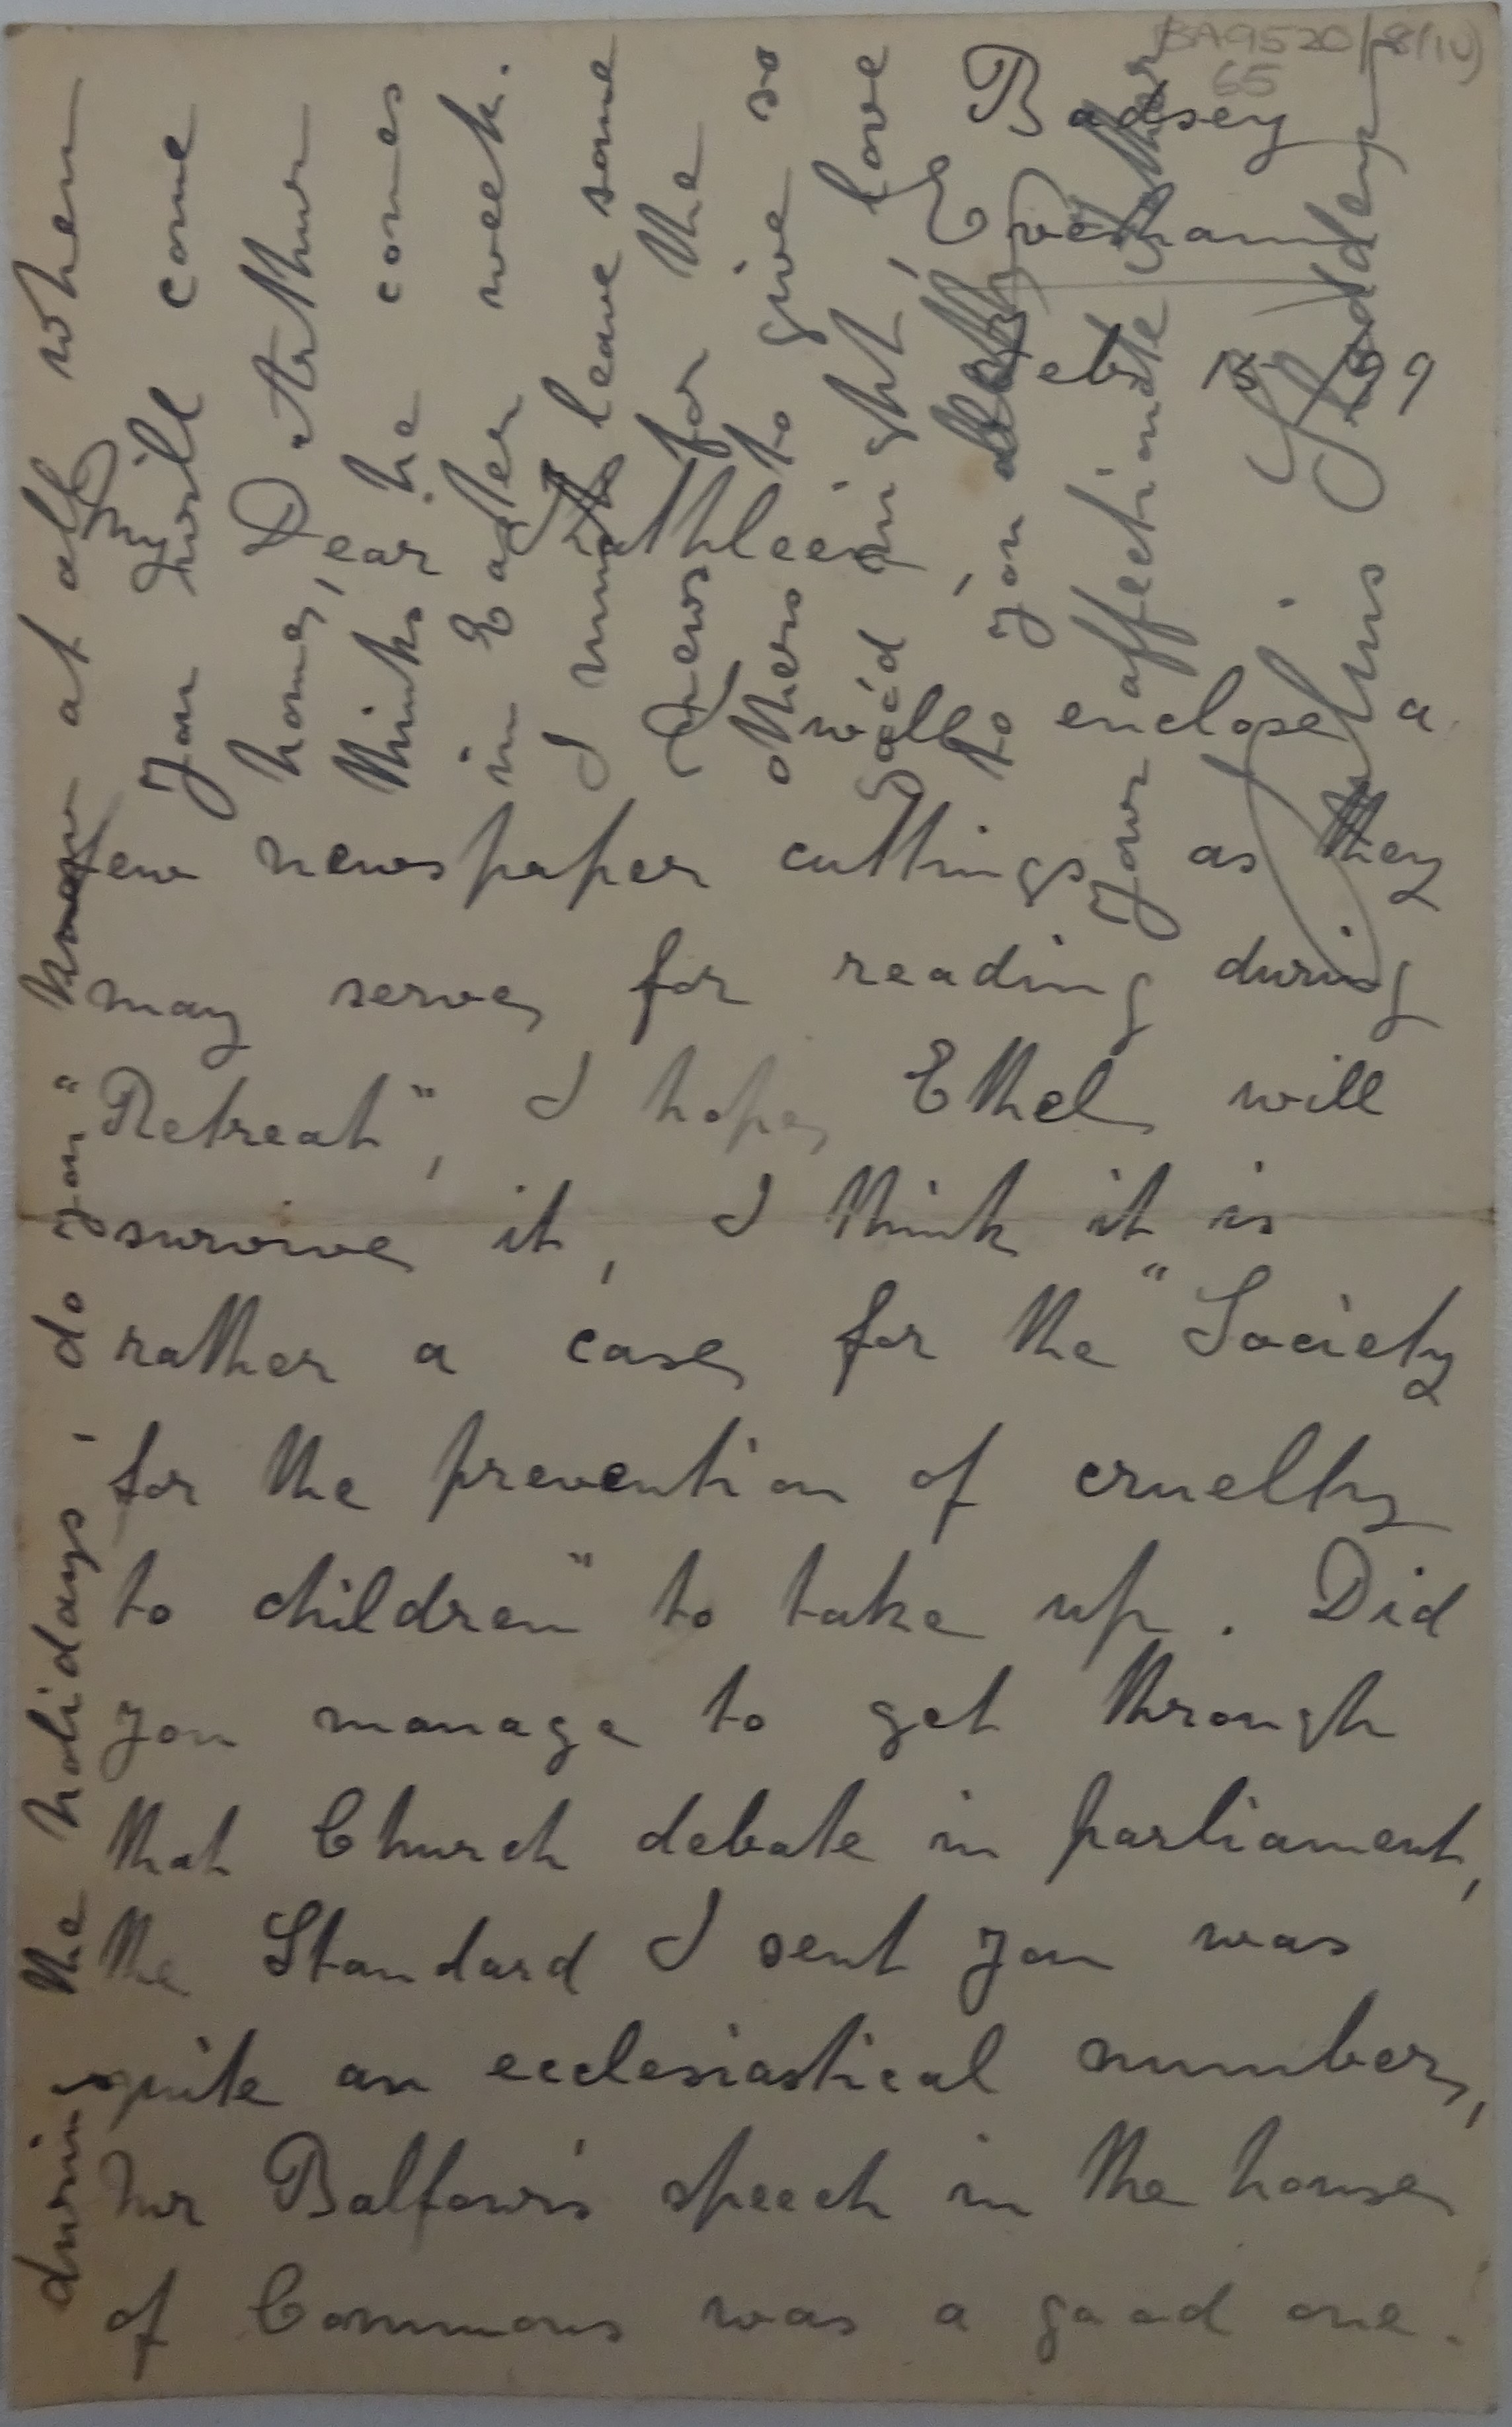 BA9520/8(iv)
65
Badsey
Evesham
Feb 15 /99
My Dear Kathleen,
I will enclose a
few newspaper cuttings as they
may serve for reading during
"Retreat", I hope Ethel will
survive it, I think it is
rather a case for the "Society
for the prevention of cruelty
to children" to take up. Did
you manage to get through
that Church debate in parliament,
the Standard I sent you was
quite an ecclesiastical number,
Mr Balfour's speech in the house
of Commons was a good one.
during the holidays, do you know at all when
you will come
home, Arthur
thinks he comes
in Easter week.
I must leave some
news for the
others to give so
good night, love
to you
your affectionate brother
Julius Sladden